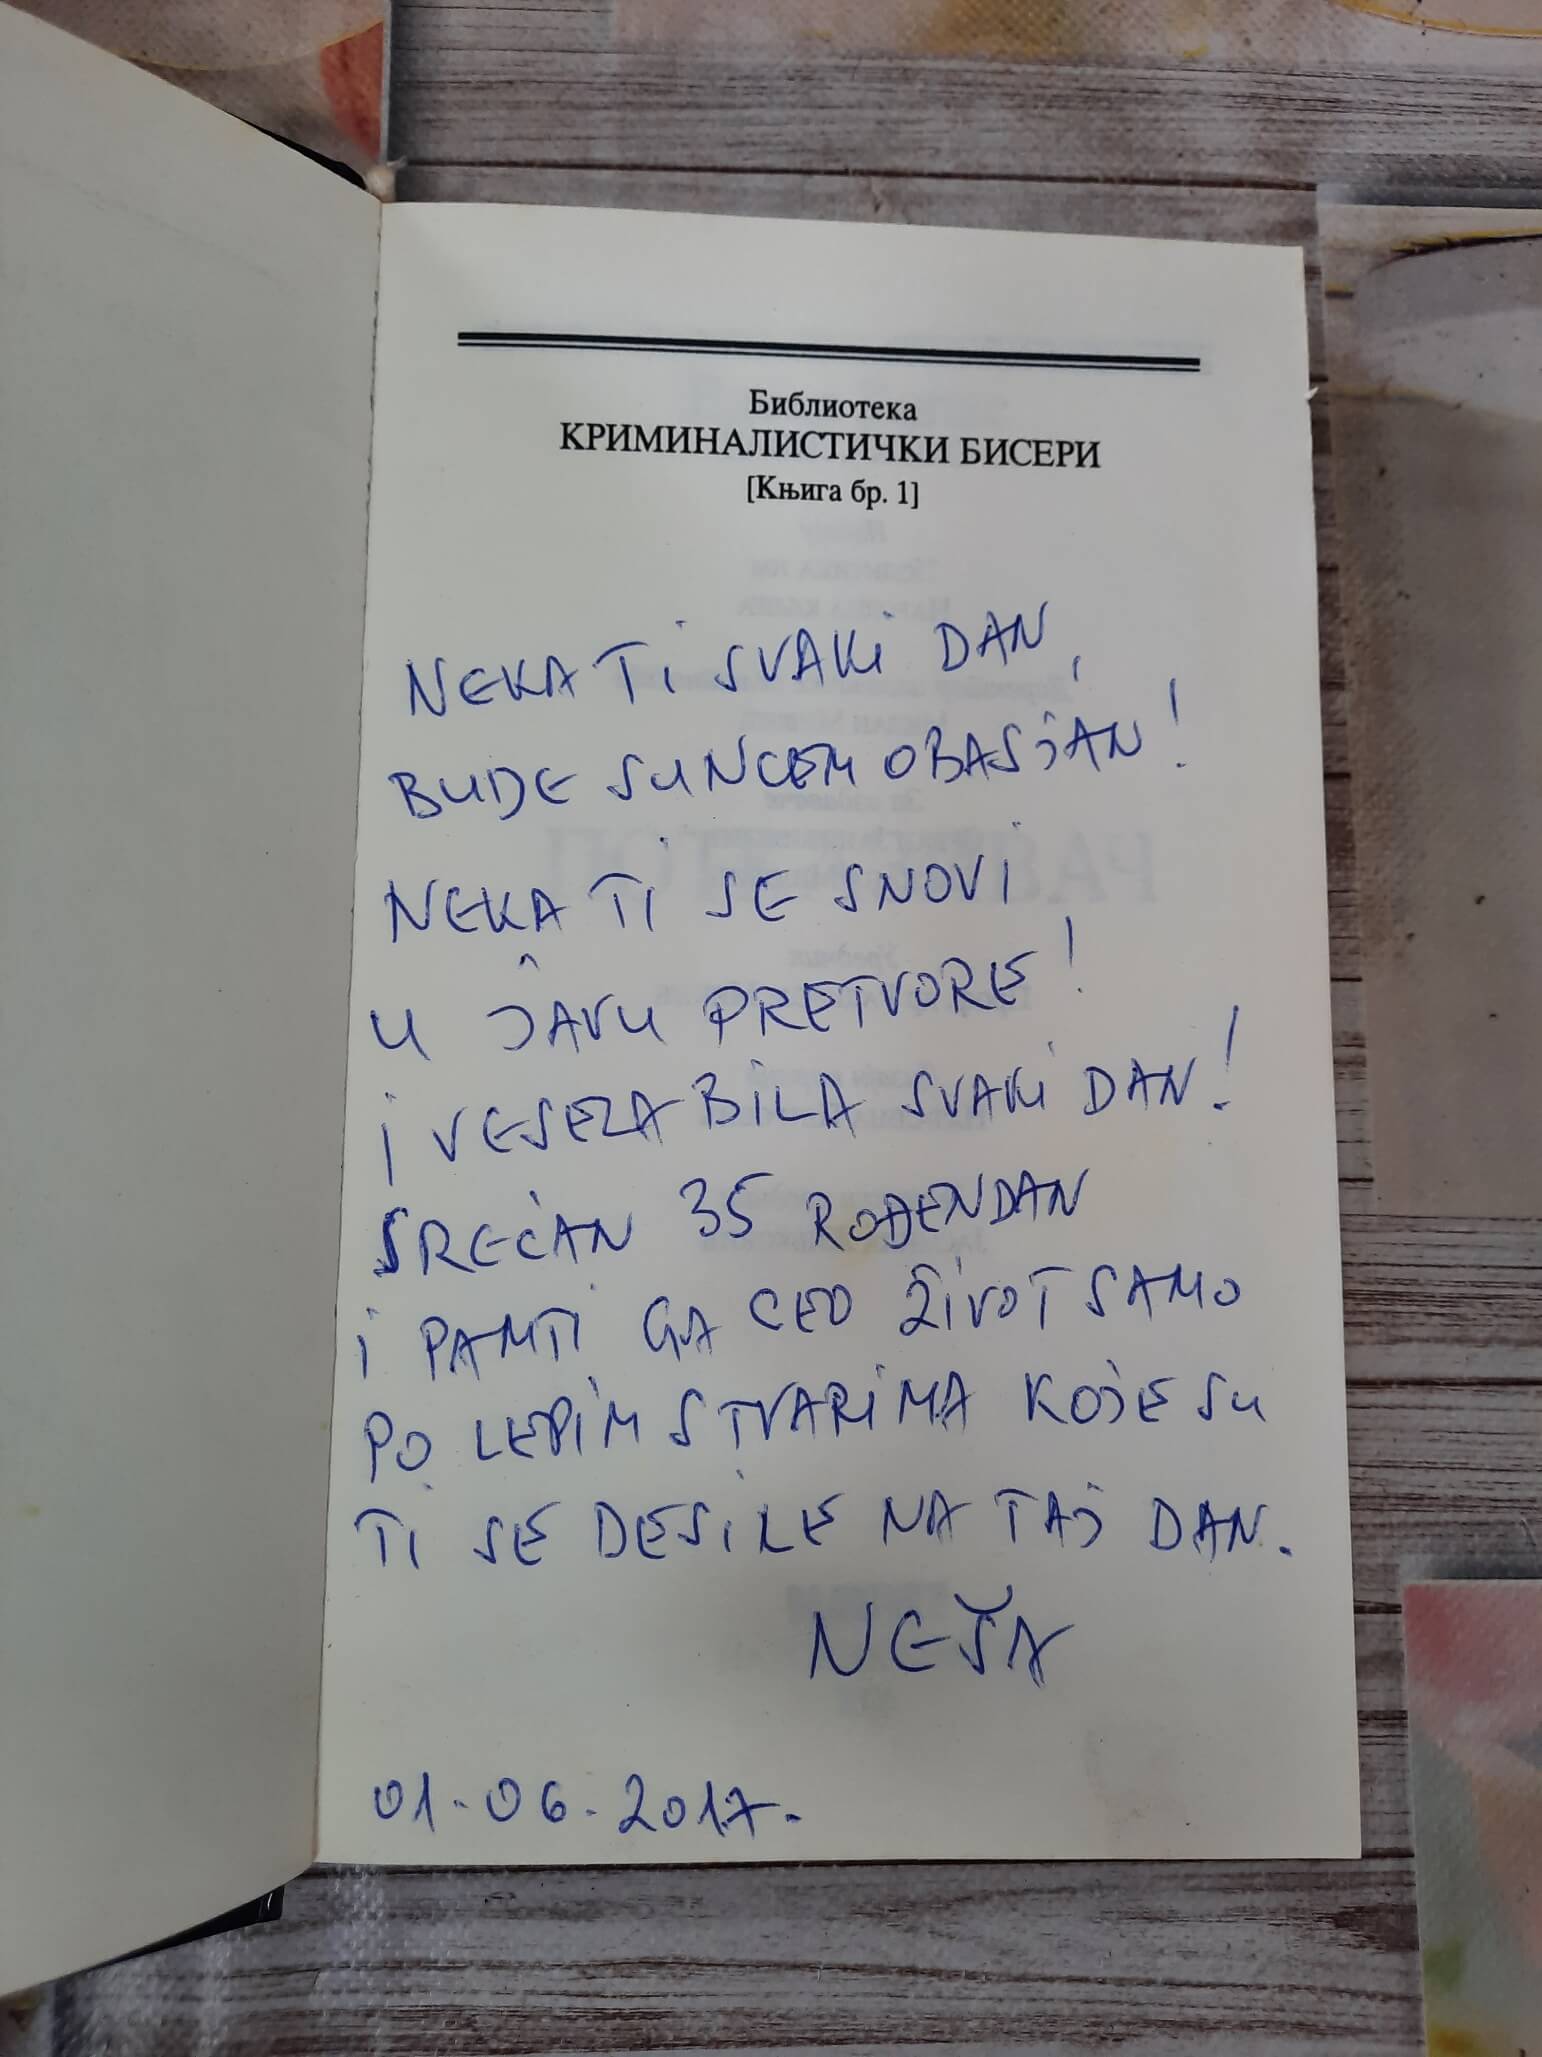 Библиотека
КРИМИНАЛИСТИЧКИ БИСЕРИ
[Књига бр. 1]
NEKA TI SVAKI DAN,
BUDE SUNCEM OBASJAN!
NEKA TI SE SNOVI
U JAVU PRETVORE!
I VESELA BILA SVAKI DAN!
SREĆAN 35 ROĐENDAN
I PAMTI GA CEO ŽIVOT SAMO
PO LEPIM STVARIMA KOJE SU
TI SE DESILE NA TAJ DAN.
NEŠA
01.06.2017.